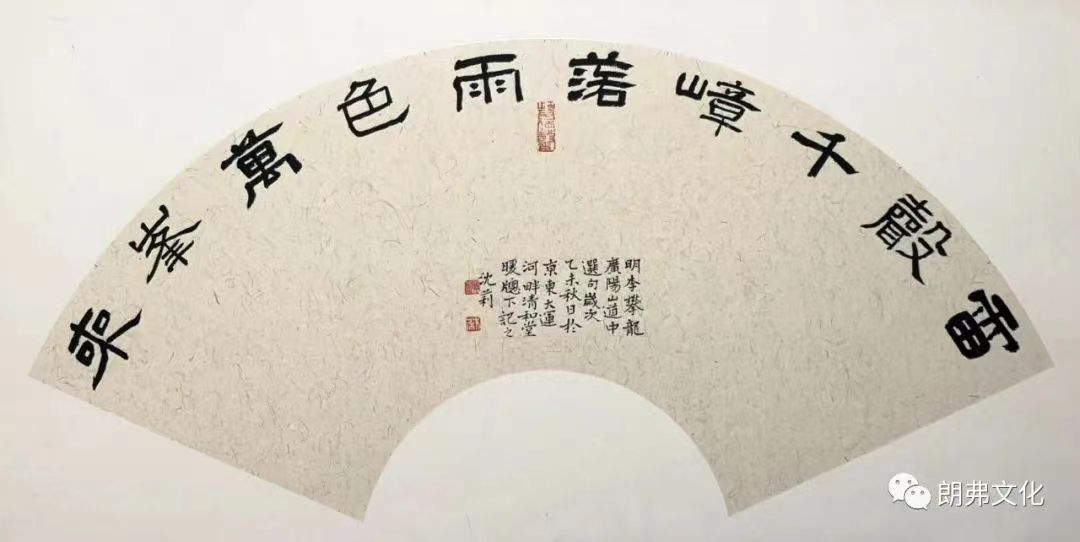 雷聲千嶂落雨色萬峯來
明李攀龍
廣陽山道中
選句歲次
乙未秋日於
京東大運
河畔清和堂
暖牕下記之
沈莉
朗弗文化